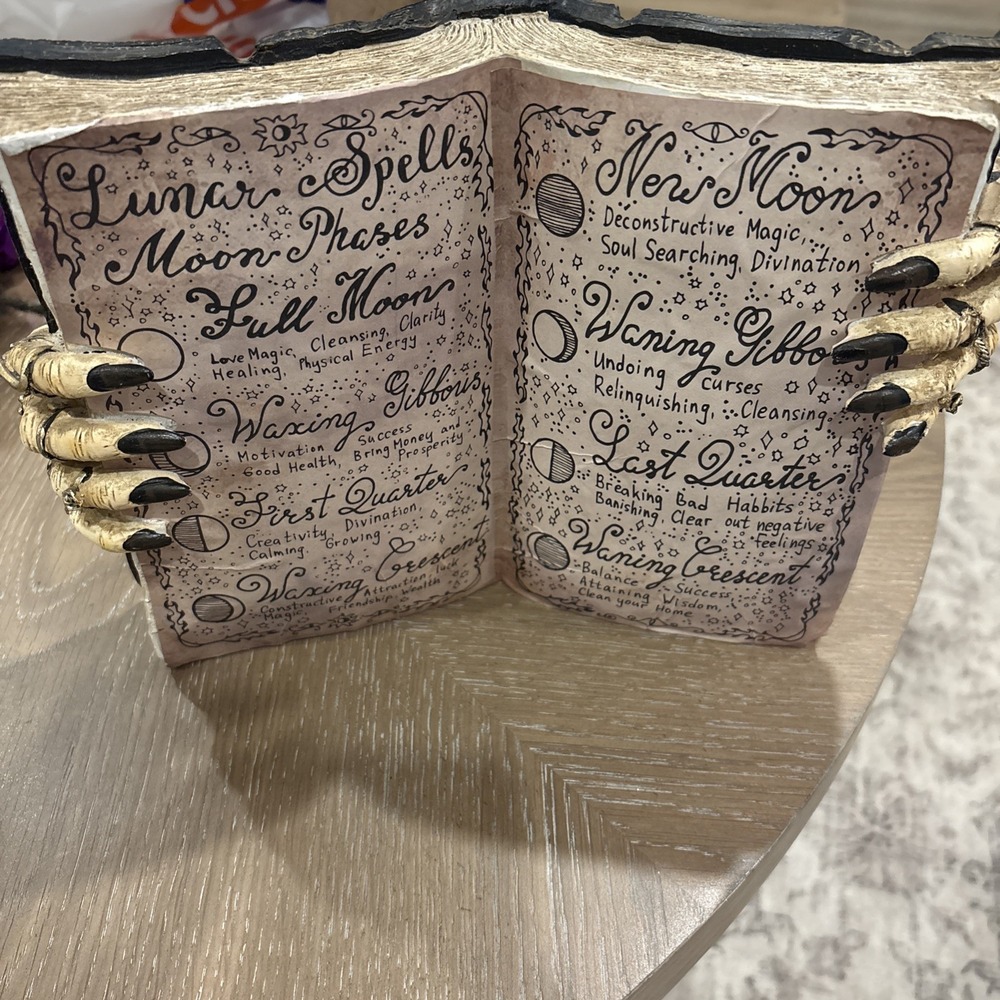 Lunar Spells
Moon Phases
Full Moon
Love Magic, Cleansing, Clarity
Healing, Physical Energy
Waxing Gibbous
Motivation Success
Good Health, Bring Money and Prosperity
First Quarter
Creativity, Divination,
Calming, Growing
Waxing Crescent
Constructive Attraction luck
Magic, Friendship wealth
New Moon
Deconstructive Magic,
Soul Searching, Divination
Waning Gibbo
Undoing Curses
Relinquishing, Cleansing
Last Quarter
Breaking Bad Habbits
Banishing, Clear out negative
feelings
Waning Crescent
Balance Success,
Attaining Wisdom,
Clean your Home